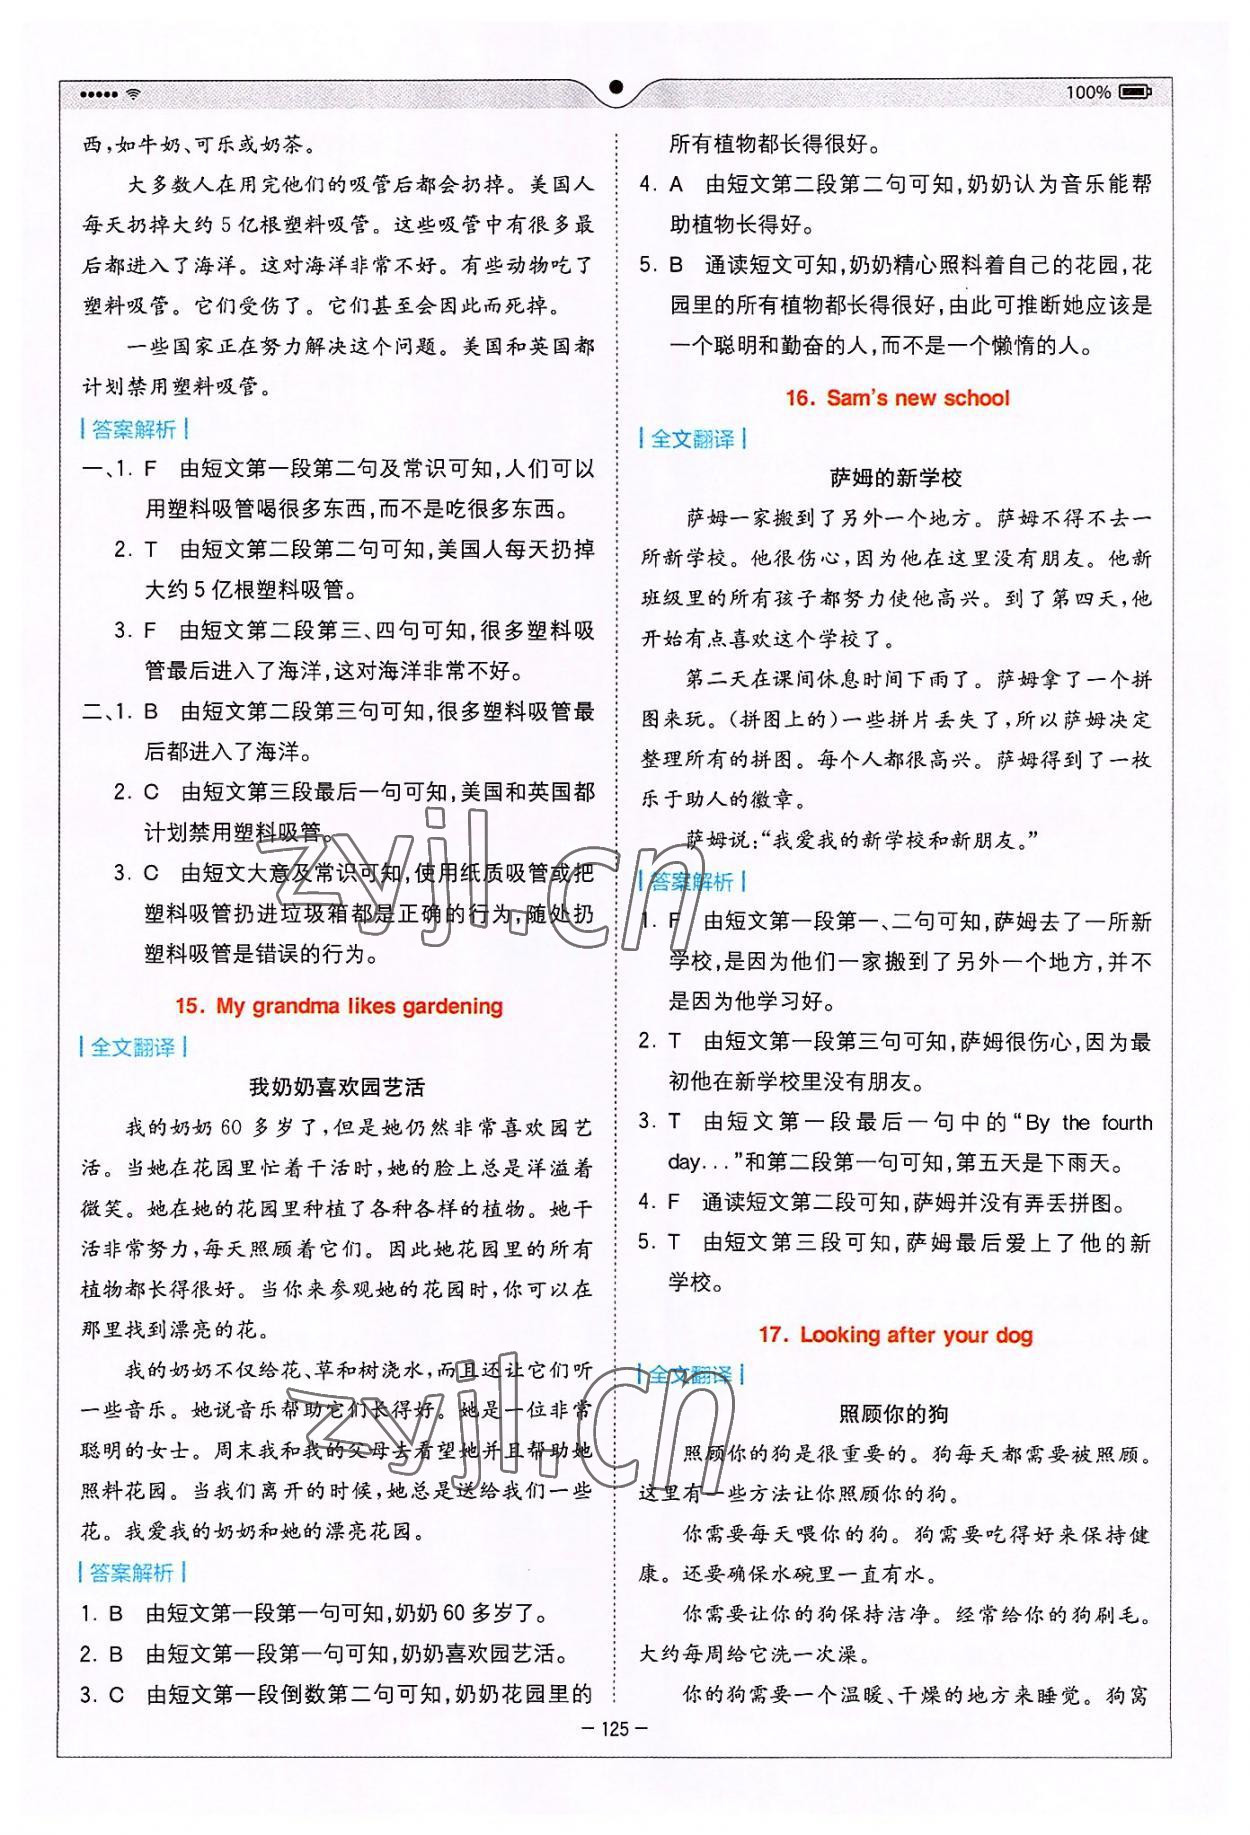 100%
西,如牛奶、可乐或奶茶。
大多数人在用完他们的吸管后都会扔掉。美国人
每天扔掉大约 5 亿根塑料吸管。这些吸管中有很多最
后都进入了海洋。这对海洋非常不好。有些动物吃了
塑料吸管。它们受伤了。它们甚至会因此而死掉。
一些国家正在努力解决这个问题。美国和英国都
计划禁用塑料吸管。
答案解析
一、1. F 由短文第一段第二句及常识可知,人们可以
用塑料吸管喝很多东西,而不是吃很多东西。
2. T 由短文第二段第二句可知,美国人每天扔掉
大约 5 亿根塑料吸管。
3. F 由短文第二段第三、四句可知,很多塑料吸
管最后进入了海洋,这对海洋非常不好。
二、1. B 由短文第二段第三句可知,很多塑料吸管最
后都进入了海洋。
2. C 由短文第三段最后一句可知,美国和英国都
计划禁用塑料吸管。
3. C 由短文大意及常识可知,使用纸质吸管或把
塑料吸管扔进垃圾箱都是正确的行为,随处扔
塑料吸管是错误的行为。
15. My grandma likes gardening
全文翻译
我奶奶喜欢园艺活
我的奶奶 60 多岁了,但是她仍然非常喜欢园艺
活。当她在花园里忙着干活时,她的脸上总是洋溢着
微笑。她在她的花园里种植了各种各样的植物。她干
活非常努力,每天照顾着它们。因此她花园里的所有
植物都长得很好。当你来参观她的花园时,你可以在
那里找到漂亮的花。
我的奶奶不仅给花、草和树浇水,而且还让它们听
一些音乐。她说音乐帮助它们长得好。她是一位非常
聪明的女士。周末我和我的父母去看望她并且帮助她
照料花园。当我们离开的时候,她总是送给我们一些
花。我爱我的奶奶和她的漂亮花园。
答案解析
1. B 由短文第一段第一句可知,奶奶 60 多岁了。
2. B 由短文第一段第一句可知,奶奶喜欢园艺活。
3. C 由短文第一段倒数第二句可知,奶奶花园里的
所有植物都长得很好。
4. A 由短文第二段第二句可知,奶奶认为音乐能帮
助植物长得好。
5. B 通读短文可知,奶奶精心照料着自己的花园,花
园里的所有植物都长得很好,由此可推断她应该是
一个聪明和勤奋的人,而不是一个懒惰的人。
16. Sam's new school
全文翻译
萨姆的新学校
萨姆一家搬到了另外一个地方。萨姆不得不去一
所新学校。他很伤心,因为他在这里没有朋友。他新
班级里的所有孩子都努力使他高兴。到了第四天,他
开始有点喜欢这个学校了。
第二天在课间休息时间下雨了。萨姆拿了一个拼
图来玩。(拼图上的)一些拼片丢失了,所以萨姆决定
整理所有的拼图。每个人都很高兴。萨姆得到了一枚
乐于助人的徽章。
萨姆说:“我爱我的新学校和新朋友。”
答案解析
1. F 由短文第一段第一、二句可知,萨姆去了一所新
学校,是因为他们一家搬到了另外一个地方,并不
是因为他学习好。
2. T 由短文第一段第三句可知,萨姆很伤心,因为最
初他在新学校里没有朋友。
3. T 由短文第一段最后一句中的“By the fourth
day...”和第二段第一句可知,第五天是下雨天。
4. F 通读短文第二段可知,萨姆并没有弄丢拼图。
5. T 由短文第三段可知,萨姆最后爱上了他的新
学校。
17. Looking after your dog
全文翻译
照顾你的狗
照顾你的狗是很重要的。狗每天都需要被照顾。
这里有一些方法让你照顾你的狗。
你需要每天喂你的狗。狗需要吃得好来保持健
康。还要确保水碗里一直有水。
你需要让你的狗保持洁净。经常给你的狗刷毛。
大约每周给它洗一次澡。
你的狗需要一个温暖、干燥的地方来睡觉。狗窝
zyjl.cn
zyjl.cn
- 125 -